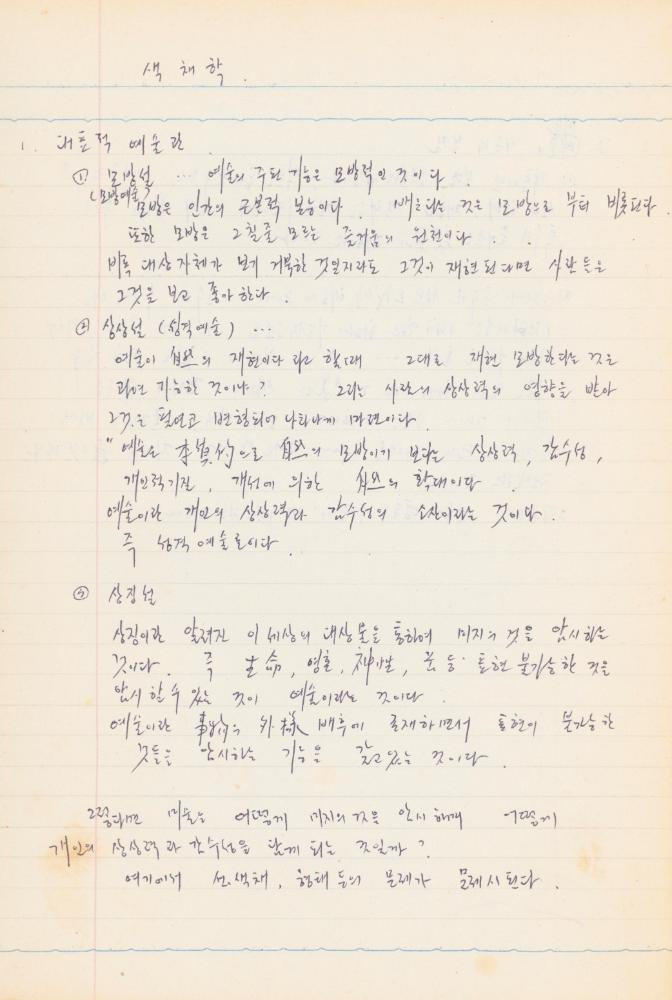 색채학.
1. 대표적 예술관
① 모방설 … 예술의 주된 기능은 모방력인 것이다.
(모방예술)
모방은 인간의 근본적 본능이다. 배운다는 것은 모방으로 부터 비롯된다.
또한 모방은 그칠줄 모르는 즐거움의 원천이다.
비록 대상자체가 보기 거북한 것일지라도 그것이 재현된다면 사람들은
그것을 보고 좋아한다.
② 상상설 (성격예술) …
예술이 自然의 재현이다 라고 할때 그대로 재현 모방한다는 것은
과연 가능한 것이냐? 그리는 사람의 상상력의 영향을 받아
그것은 필연코 변형되어 나타나게 마련이다.
"예술은 本質的으로 自然의 모방이기 보다는 상상력, 감수성,
개인적기질, 개성에 의한 自然의 확대이다.
예술이란 개인의 상상력과 감수성의 소산이라는 것이다.
즉 성격예술론이다.
③ 상징설
상징이란 알려진 이 세상의 대상물을 통하여 미지의 것을 암시하는
것이다. 즉 生命, 영혼, 神, 꿈 등 표현 불가능한 것을
암시할 수 있는 것이 예술이라는 것이다.
예술이란 事物의 外樣 배후에 존재하면서 표현이 불가능한
것들을 암시하는 기능을 갖고 있는 것이다.
그렇다면 미술은 어떻게 미지의 것을 암시하며 어떻게
개인의 상상력과 감수성을 담게 되는 것일까?
여기에서 선, 색채, 형태 등의 문제가 문제시 된다.